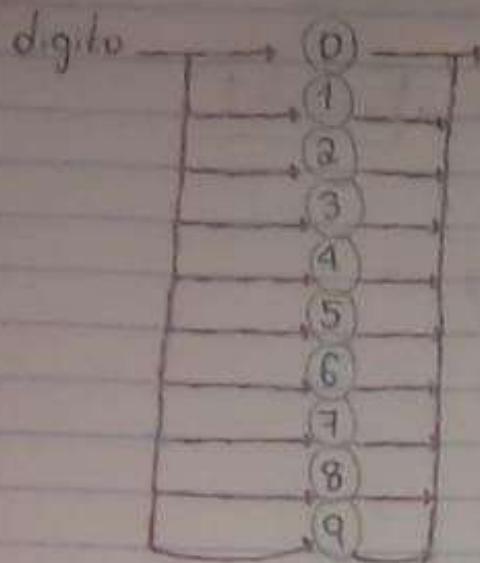 digito 0
1
2
3
4
5
6
7
8
9